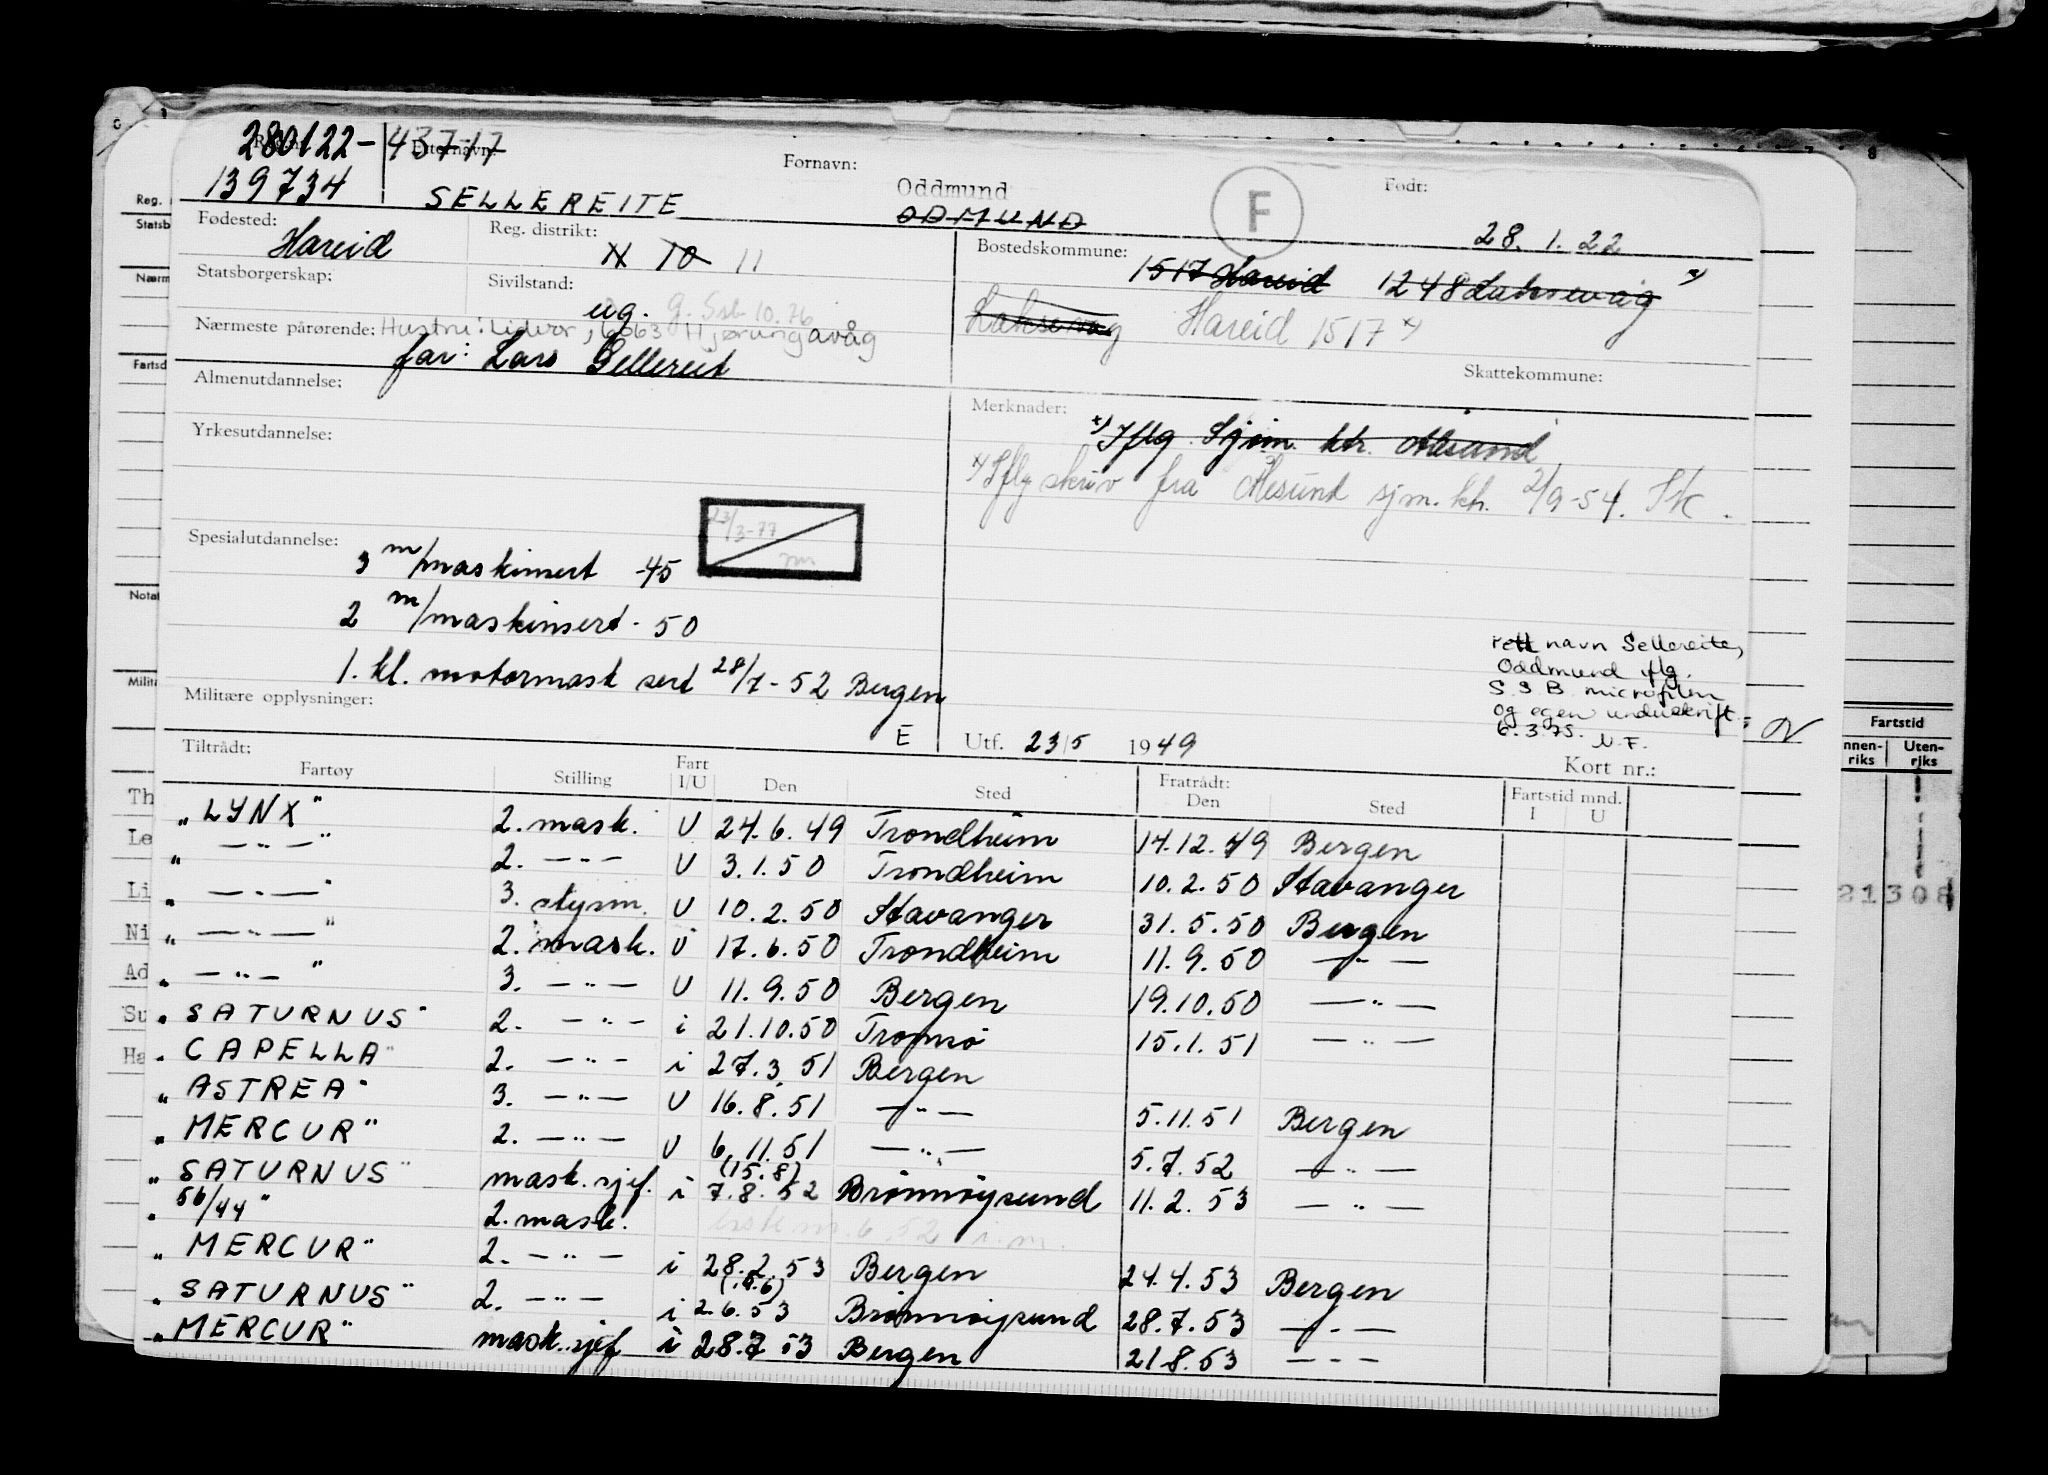 280122-43717
139734
Etternavn:
SELLEREITE
Fornavn:
Oddmund
ODMUND
F
Født:
28. 1. 22
Fødested:
Hareid
Reg. distrikt:
10 11
Bostedskommune:
1517 Hareid 1248 Laksevåg x)
Laksevåg Hareid 1517 x)
Statsborgerskap:
Sivilstand:
ug. g. Ssb 10.76
Nærmeste pårørende: Hustru: Lidvor, 6063 Hjørungavåg
far: Lars Sellereit
Skattekommune:
Almenutdannelse:
Merknader:
x) Iflg. Sjøm. ktr. Ålesund
x) Iflg skriv fra Ålesund sjm. ktr. 2/9-54. SK.
Yrkesutdannelse:
23/3-77
m
Spesialutdannelse:
3 m/maskinsert -45
2 m/maskinsert - 50
1. kl. motormask sert 28/7-52 Bergen
rett navn Sellereite,
Oddmund iflg.
S S B microfilm
og egen underskrift
6.3.75. N.F.
Militære opplysninger:
E
Utf. 23/5 1949
Kort nr.:
Tiltrådt:
Fartøy Stilling Fart I/U Den Sted Fratrådt: Den Sted Fartstid mnd. I U
"LYNX" 2. mask. U 24.6.49 Trondheim 14.12.49 Bergen
" — " — " 2. — " — U 3.1.50 Trondheim 10.2.50 Stavanger
" — " — " 3. styrm. U 10.2.50 Stavanger 31.5.50 Bergen
" — " — " 2. mask. U 17.6.50 Trondheim 11.9.50 — " —
" — " — " 3. — " — U 11.9.50 Bergen 19.10.50 — " —
"SATURNUS" 2. — " — i 21.10.50 Tromsø 15.1.51 — " —
"CAPELLA" 2. — " — i 27.3.51 Bergen
"ASTREA" 3. — " — U 16.8.51 — " — 5.11.51 Bergen
"MERCUR" 2. — " — U 6.11.51 — " — 5.7.52 — " —
"SATURNUS" mask.sjef. i (15.8) 7.8.52 Brønnøysund 11.2.53 — " —
"56/44" 2. mask. 6.52 i.m.
"MERCUR" 2. — " — i 28.2.53 Bergen 24.4.53 Bergen
"SATURNUS" 2. — " — i 2.6.53 Brønnøysund 28.7.53 — " —
"MERCUR" mask.sjef i 28.7 53 Bergen 21.8.53 — " —
Reg.
Statsb
Nærm
Fartsd
Notat
Milit
Th
Le
Li
Ni
Ad
Su
Ha
Fartstid
nnen-riks Uten-riks
21308